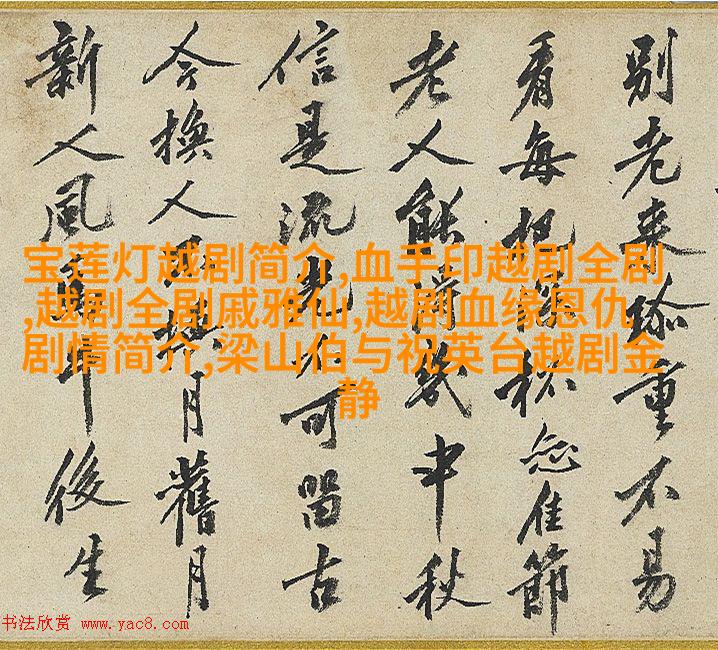 别老来珍重不易
看每把深杯恋佳節
老人能得幾中秋
信是流光不可留古
今換人不換月舊月
新人風馬牛後生
宝莲灯越剧简介,血手印越剧全剧
,越剧全剧戚雅仙,越剧血缘恩仇
剧情简介,梁山伯与祝英台越剧金
静
书法欣赏 www.yac8.com